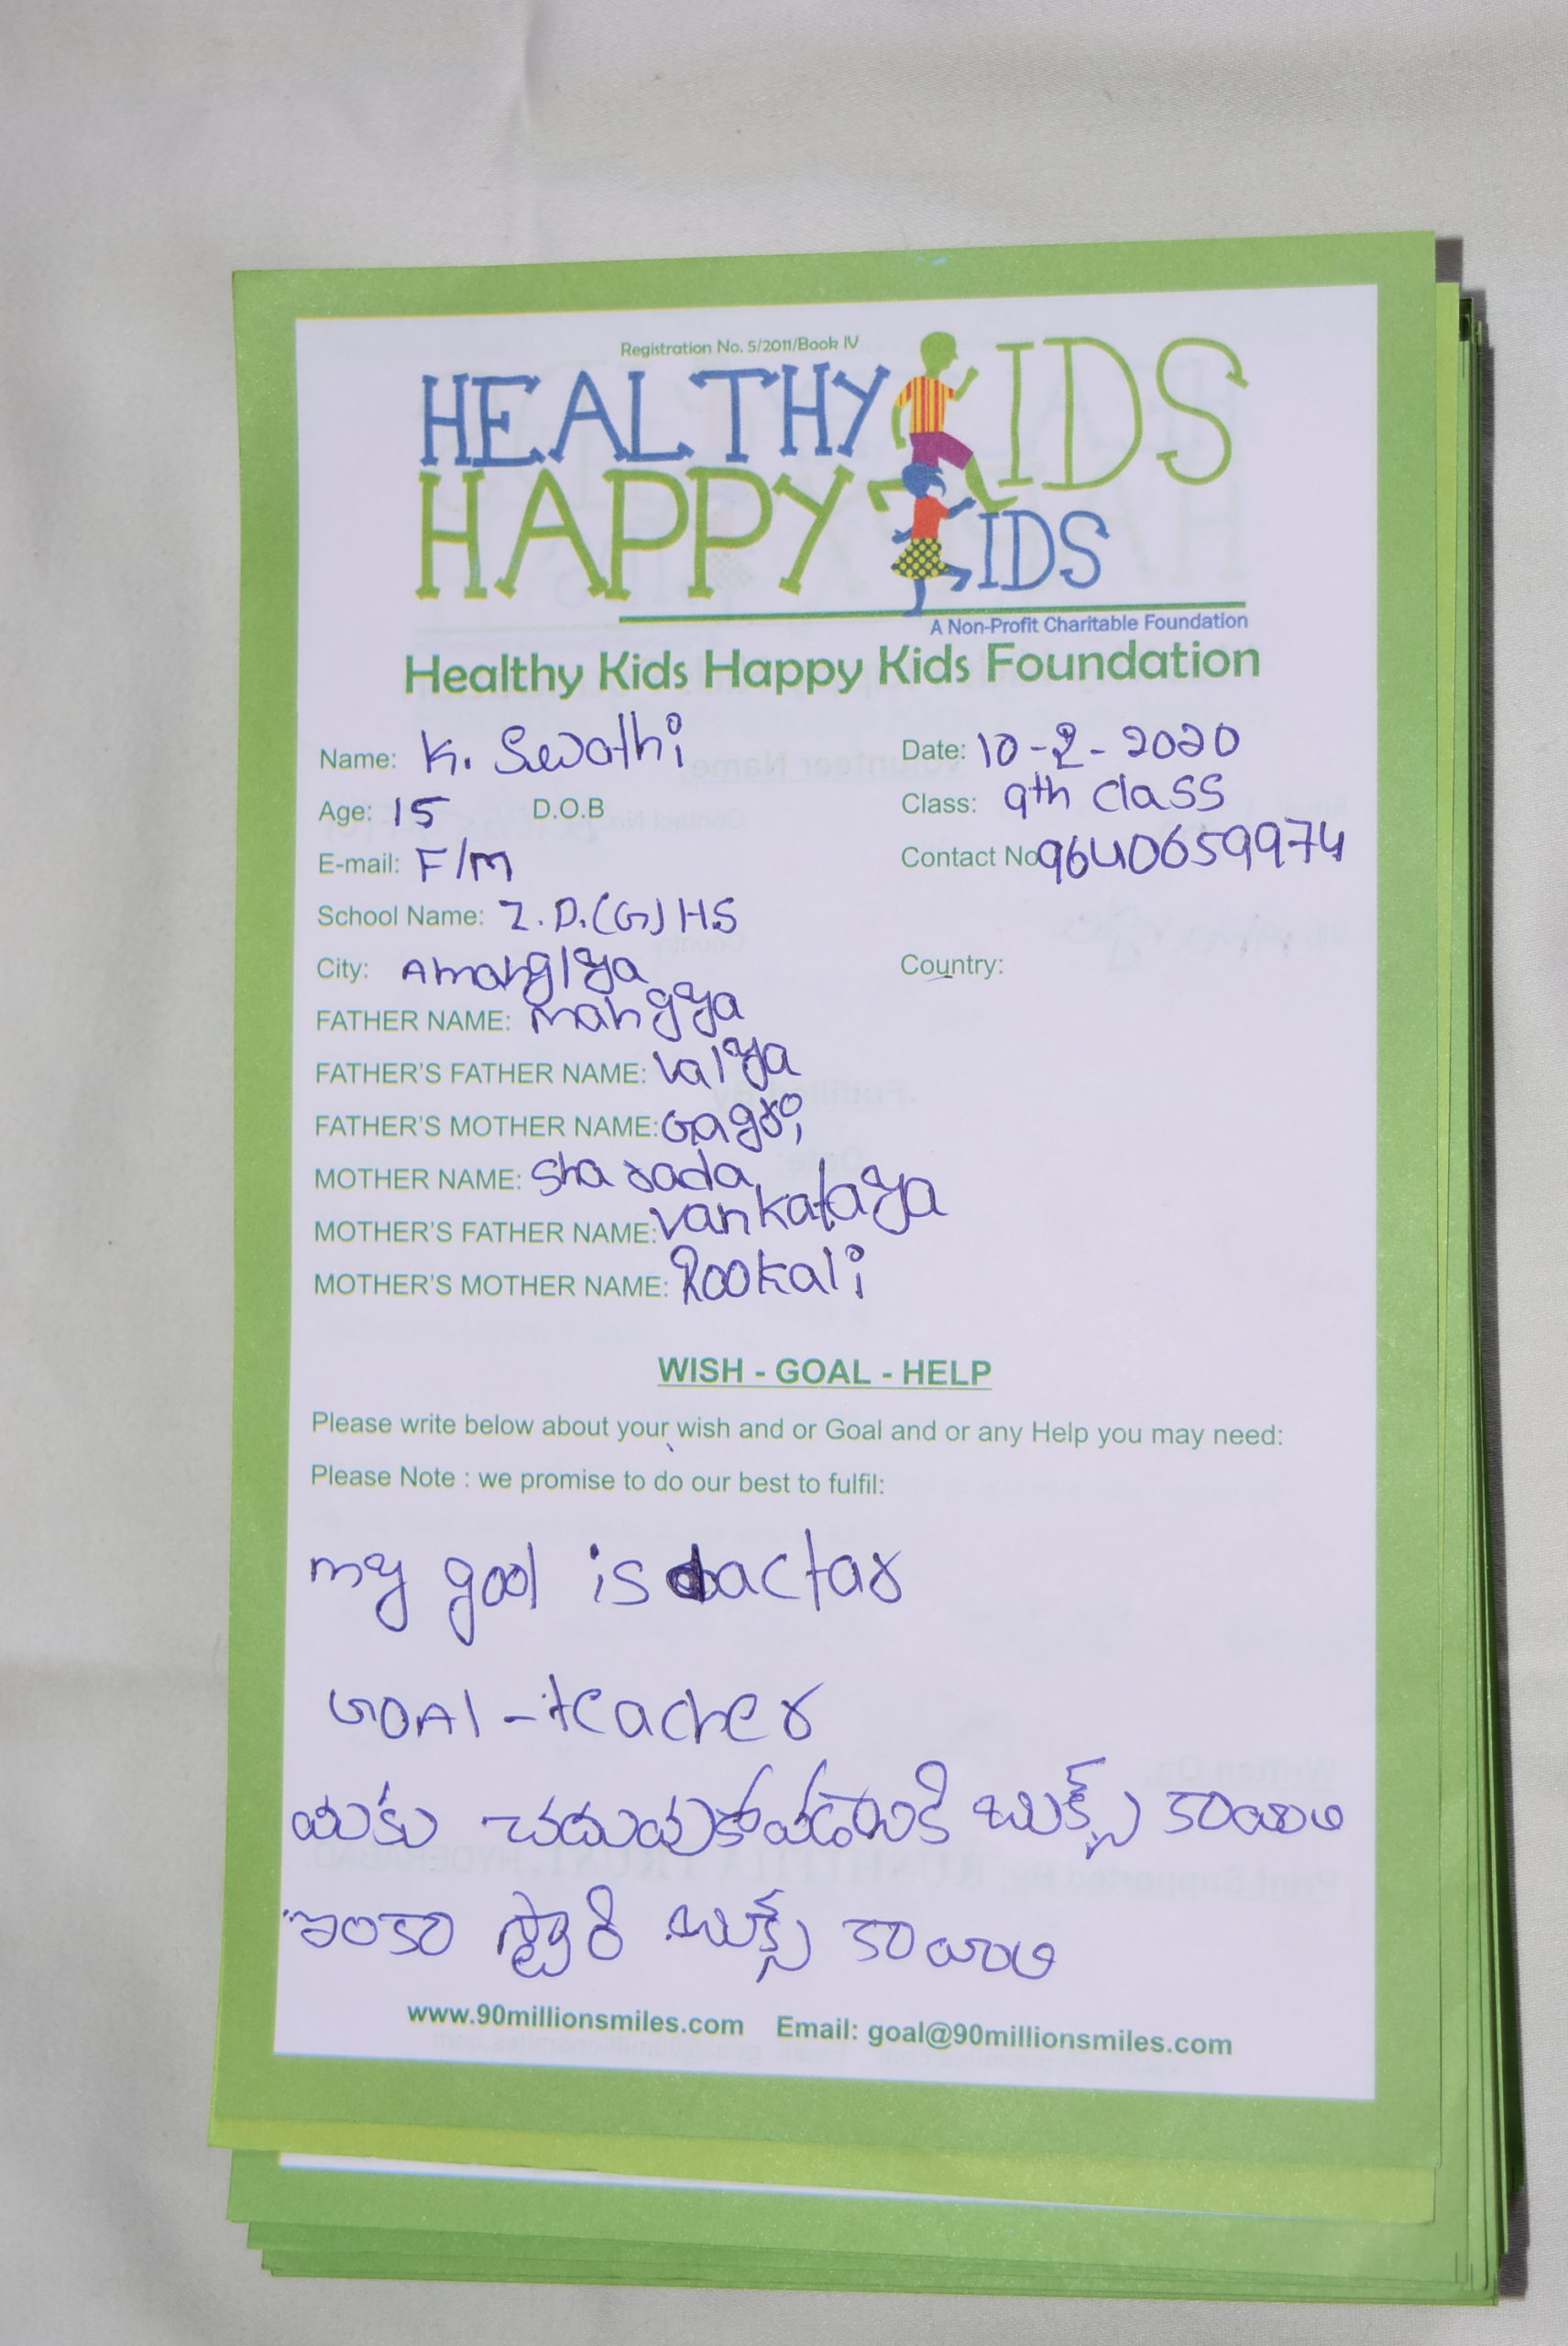 Registration No. 5/2011/Book IV
HEALTHY KIDS
HAPPY KIDS
A Non-Profit Charitable Foundation
Healthy Kids Happy Kids Foundation
Name: K. Swathi Date: 10-2-2020
Age: 15 D.O.B Class: 9th class
E-mail: F/M Contact No 9640659974
School Name: Z.P.(G) HS
City: Amanglya Country:
FATHER NAME: mangya
FATHER'S FATHER NAME: Valya
FATHER'S MOTHER NAME: Gagri
MOTHER NAME: Sharada
MOTHER'S FATHER NAME: Vankataya
MOTHER'S MOTHER NAME: Rookali
WISH - GOAL - HELP
Please write below about your wish and or Goal and or any Help you may need:
Please Note : we promise to do our best to fulfil:
my gool is dactar
GOAl - teacher
చదువుకోవడానికి బుక్స్ కావాలి
ఇంకా స్టోరి బుక్స్ కావాలి
www.90millionsmiles.com Email: goal@90millionsmiles.com